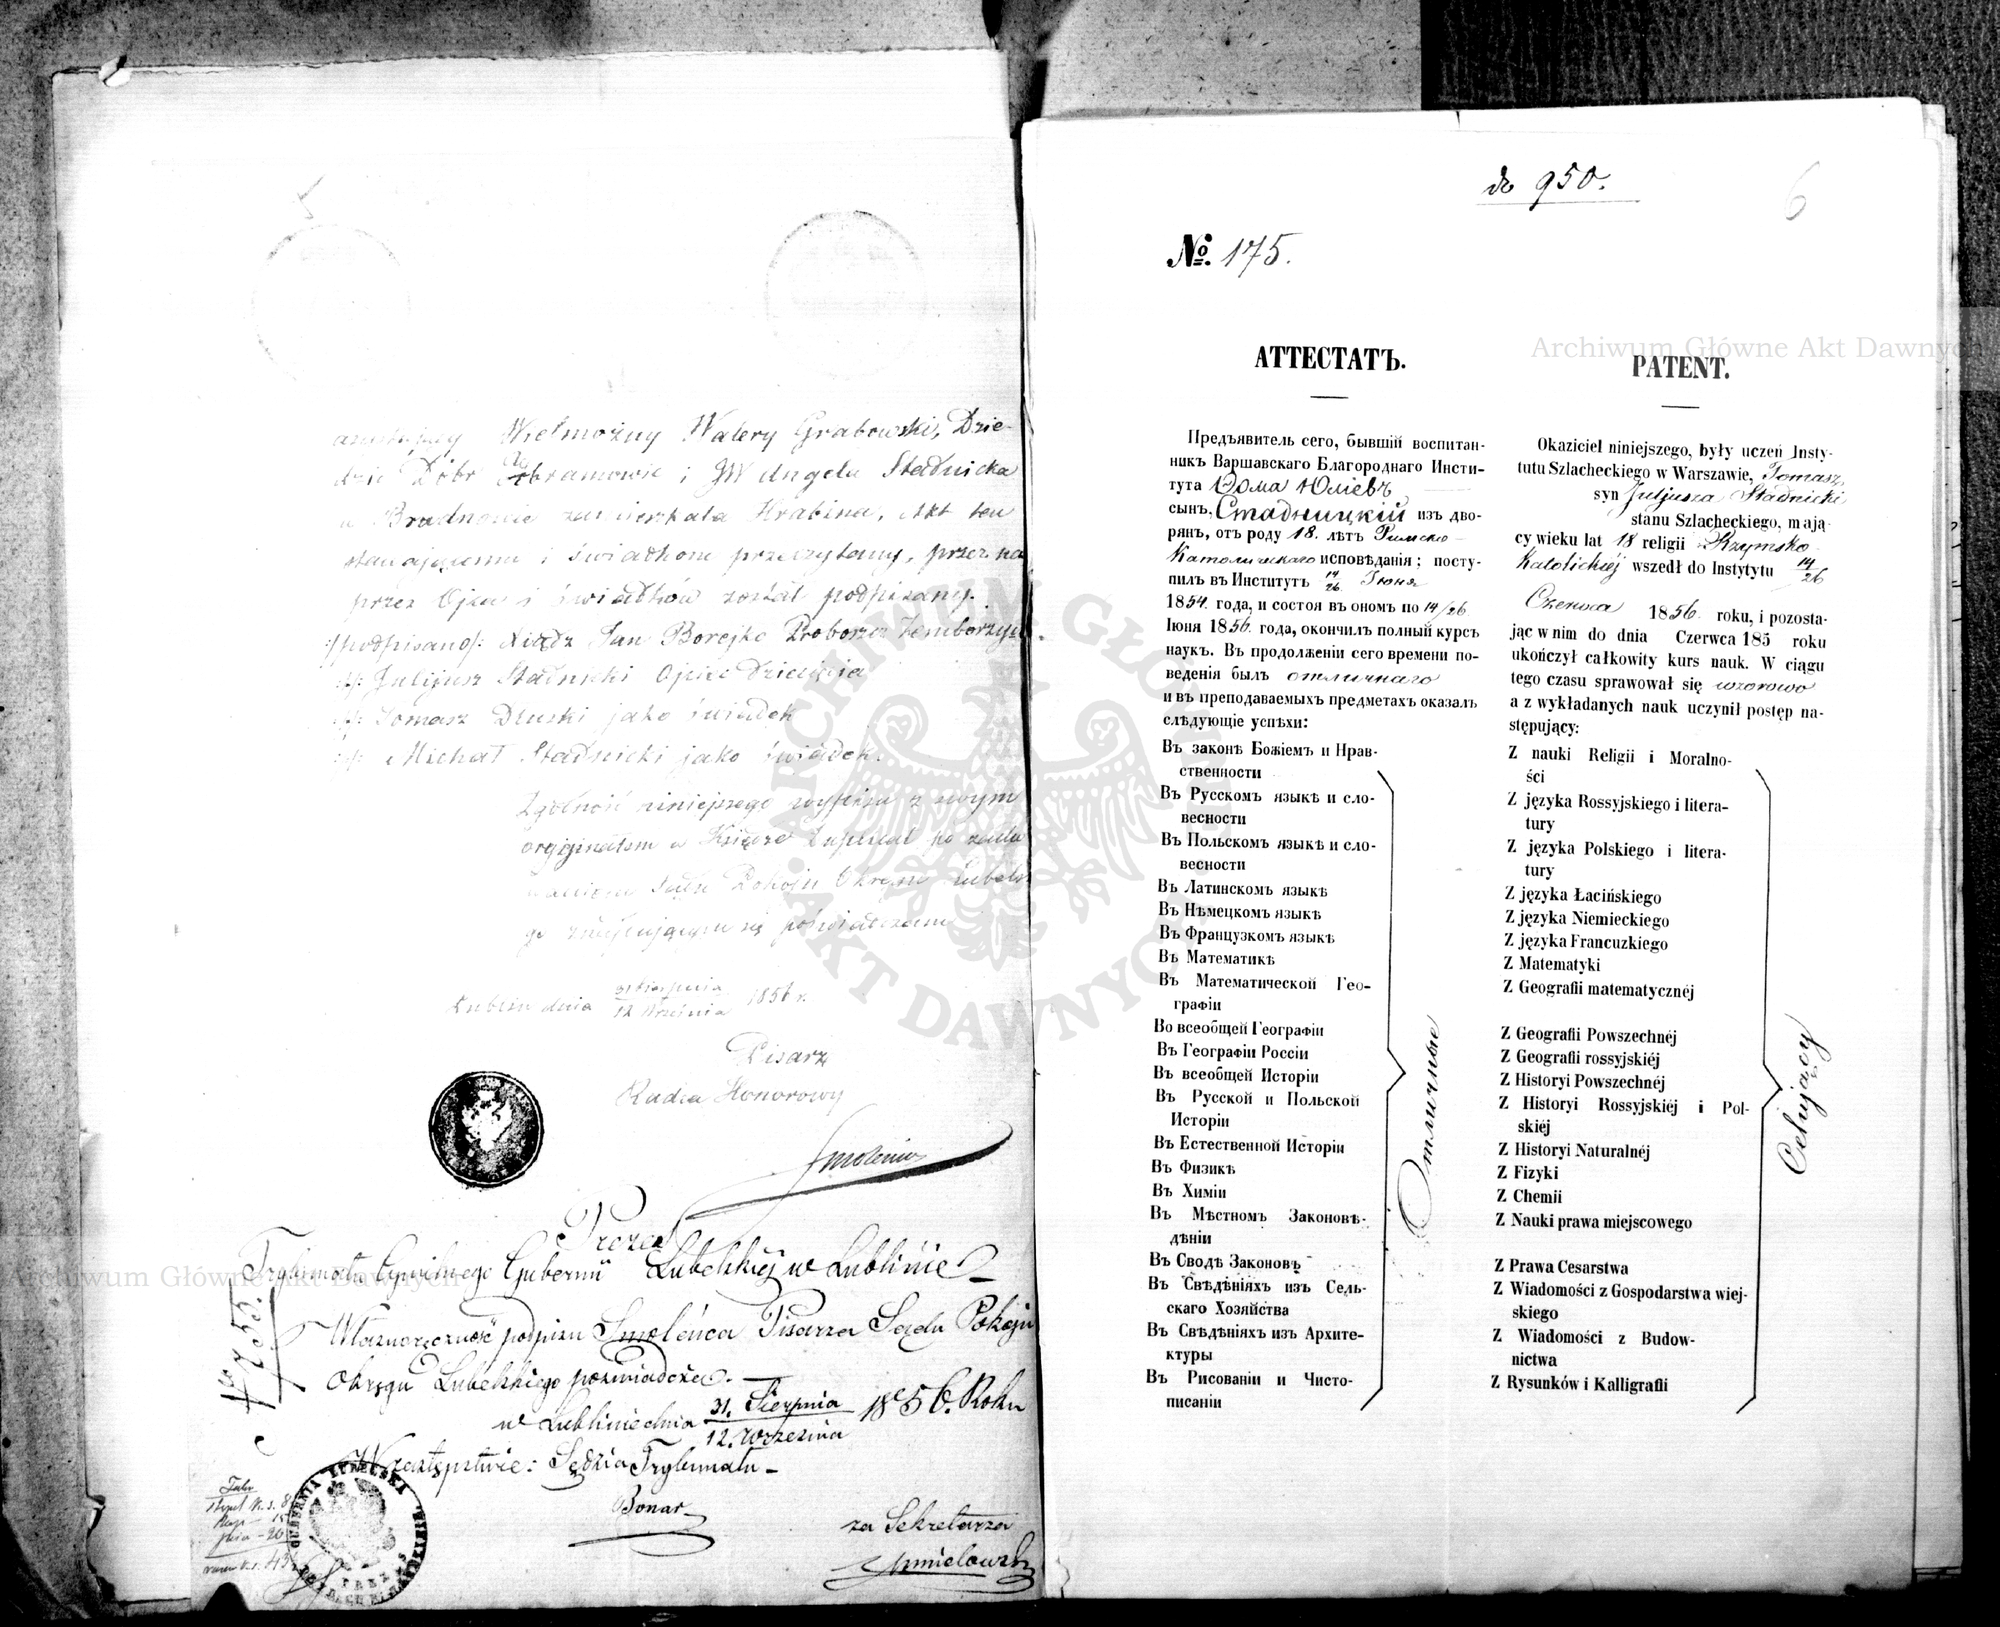 5
Wielmożny Walery Grabowski, Dzie-
dzic Dóbr Abramowic i JW Angela Stadnicka
zamieszkała Hrabina, Akt ten
stawającemu i świadkom przeczytany, przez na
przez Ojca i świadków został podpisany.
/:podpisano/: Xiądz Jan Borejko Proboszcz Zemborzycki.
Julijusz Stadnicki Ojciec dziecięcia
Tomasz Dłuski jako świadek
Michał Stadnicki jako świadek.
Zgodność niniejszego wypisu z swym
oryginałem w Księdze
Sądu Pokoju Okręgu Lubelskie
go znajdującym się poświadczam
Lublin dnia 31 Sierpnia / 12 Września 1856 r.
Pisarz
Radca Honorowy
Smoleniec
Prezes
Trybunału Cywilnego Gubernii Lubelskiej w Lublinie
Własnoręczność podpisu Smoleńca Pisarza Sądu Pokoju
Okręgu Lubelskiego poświadcza.
w Lublinie dnia 31. Sierpnia / 12. Września 1856. Roku
W zastępstwie: Sędzia Trybunału
Bonar
za Sekretarza
Chmielowski
GUBERNIA LUBELSKA
do 950.
6
№. 175.
АТТЕСТАТЪ.
Предъявитель сего, бывшій воспитан-
никъ Варшавскаго Благороднаго Инсти-
тута Ѳома Юліевъ
сынъ, Стадницкій изъ дво-
рянъ, отъ роду 18. лѣтъ Римско-
Католическаго исповѣданія; посту-
пилъ въ Институтъ 14/26. Іюня
1854. года, и состоя въ ономъ по 14/26
Іюня 1856. года, окончилъ полный курсъ
наукъ. Въ продолженіи сего времени по-
веденія былъ отличнаго
и въ преподаваемыхъ предметахъ оказалъ
слѣдующіе успѣхи:
Въ законѣ Божіемъ и Нрав-
ственности
Въ Русскомъ языкѣ и сло-
весности
Въ Польскомъ языкѣ и сло-
весности
Въ Латинскомъ языкѣ
Въ Нѣмецкомъ языкѣ
Въ Французкомъ языкѣ
Въ Математикѣ
Въ Математической Гео-
графіи
Во всеобщей Географіи
Въ Географіи Россіи
Въ всеобщей Исторіи
Въ Русской и Польской
Исторіи
Въ Естественной Исторіи
Въ Физикѣ
Въ Химіи
Въ Мѣстномъ Законовѣ-
дѣніи
Въ Сводѣ Законовъ
Въ Свѣдѣніяхъ изъ Сель-
скаго Хозяйства
Въ Свѣдѣніяхъ изъ Архите-
ктуры
Въ Рисованіи и Чисто-
писаніи
Отличные
PATENT.
Okaziciel niniejszego, były uczeń Insty-
tutu Szlacheckiego w Warszawie, Tomasz,
syn Juljusza Stadnicki
stanu Szlacheckiego, mają-
cy wieku lat 18 religii Rzymsko
Katolickiéj wszedł do Instytutu 14/26
Czerwca 1856 roku, i pozosta-
jąc w nim do dnia Czerwca 185 roku
ukończył całkowity kurs nauk. W ciągu
tego czasu sprawował się wzorowo
a z wykładanych nauk uczynił postęp na-
stępujący:
Z nauki Religii i Moralno-
ści
Z języka Rossyjskiego i litera-
tury
Z języka Polskiego i litera-
tury
Z języka Łacińskiego
Z języka Niemieckiego
Z języka Francuzkiego
Z Matematyki
Z Geografii matematycznéj
Z Geografii Powszechnéj
Z Geografii rossyjskiéj
Z Historyi Powszechnéj
Z Historyi Rossyjskiéj i Pol-
skiéj
Z Historyi Naturalnéj
Z Fizyki
Z Chemii
Z Nauki prawa miejscowego
Z Prawa Cesarstwa
Z Wiadomości z Gospodarstwa wiej-
skiego
Z Wiadomości z Budow-
nictwa
Z Rysunków i Kalligrafii
Celujący
Archiwum Główne Akt Dawnych
Archiwum Główne Akt Dawnych
ARCHIWUM GŁÓWNE AKT DAWNYCH